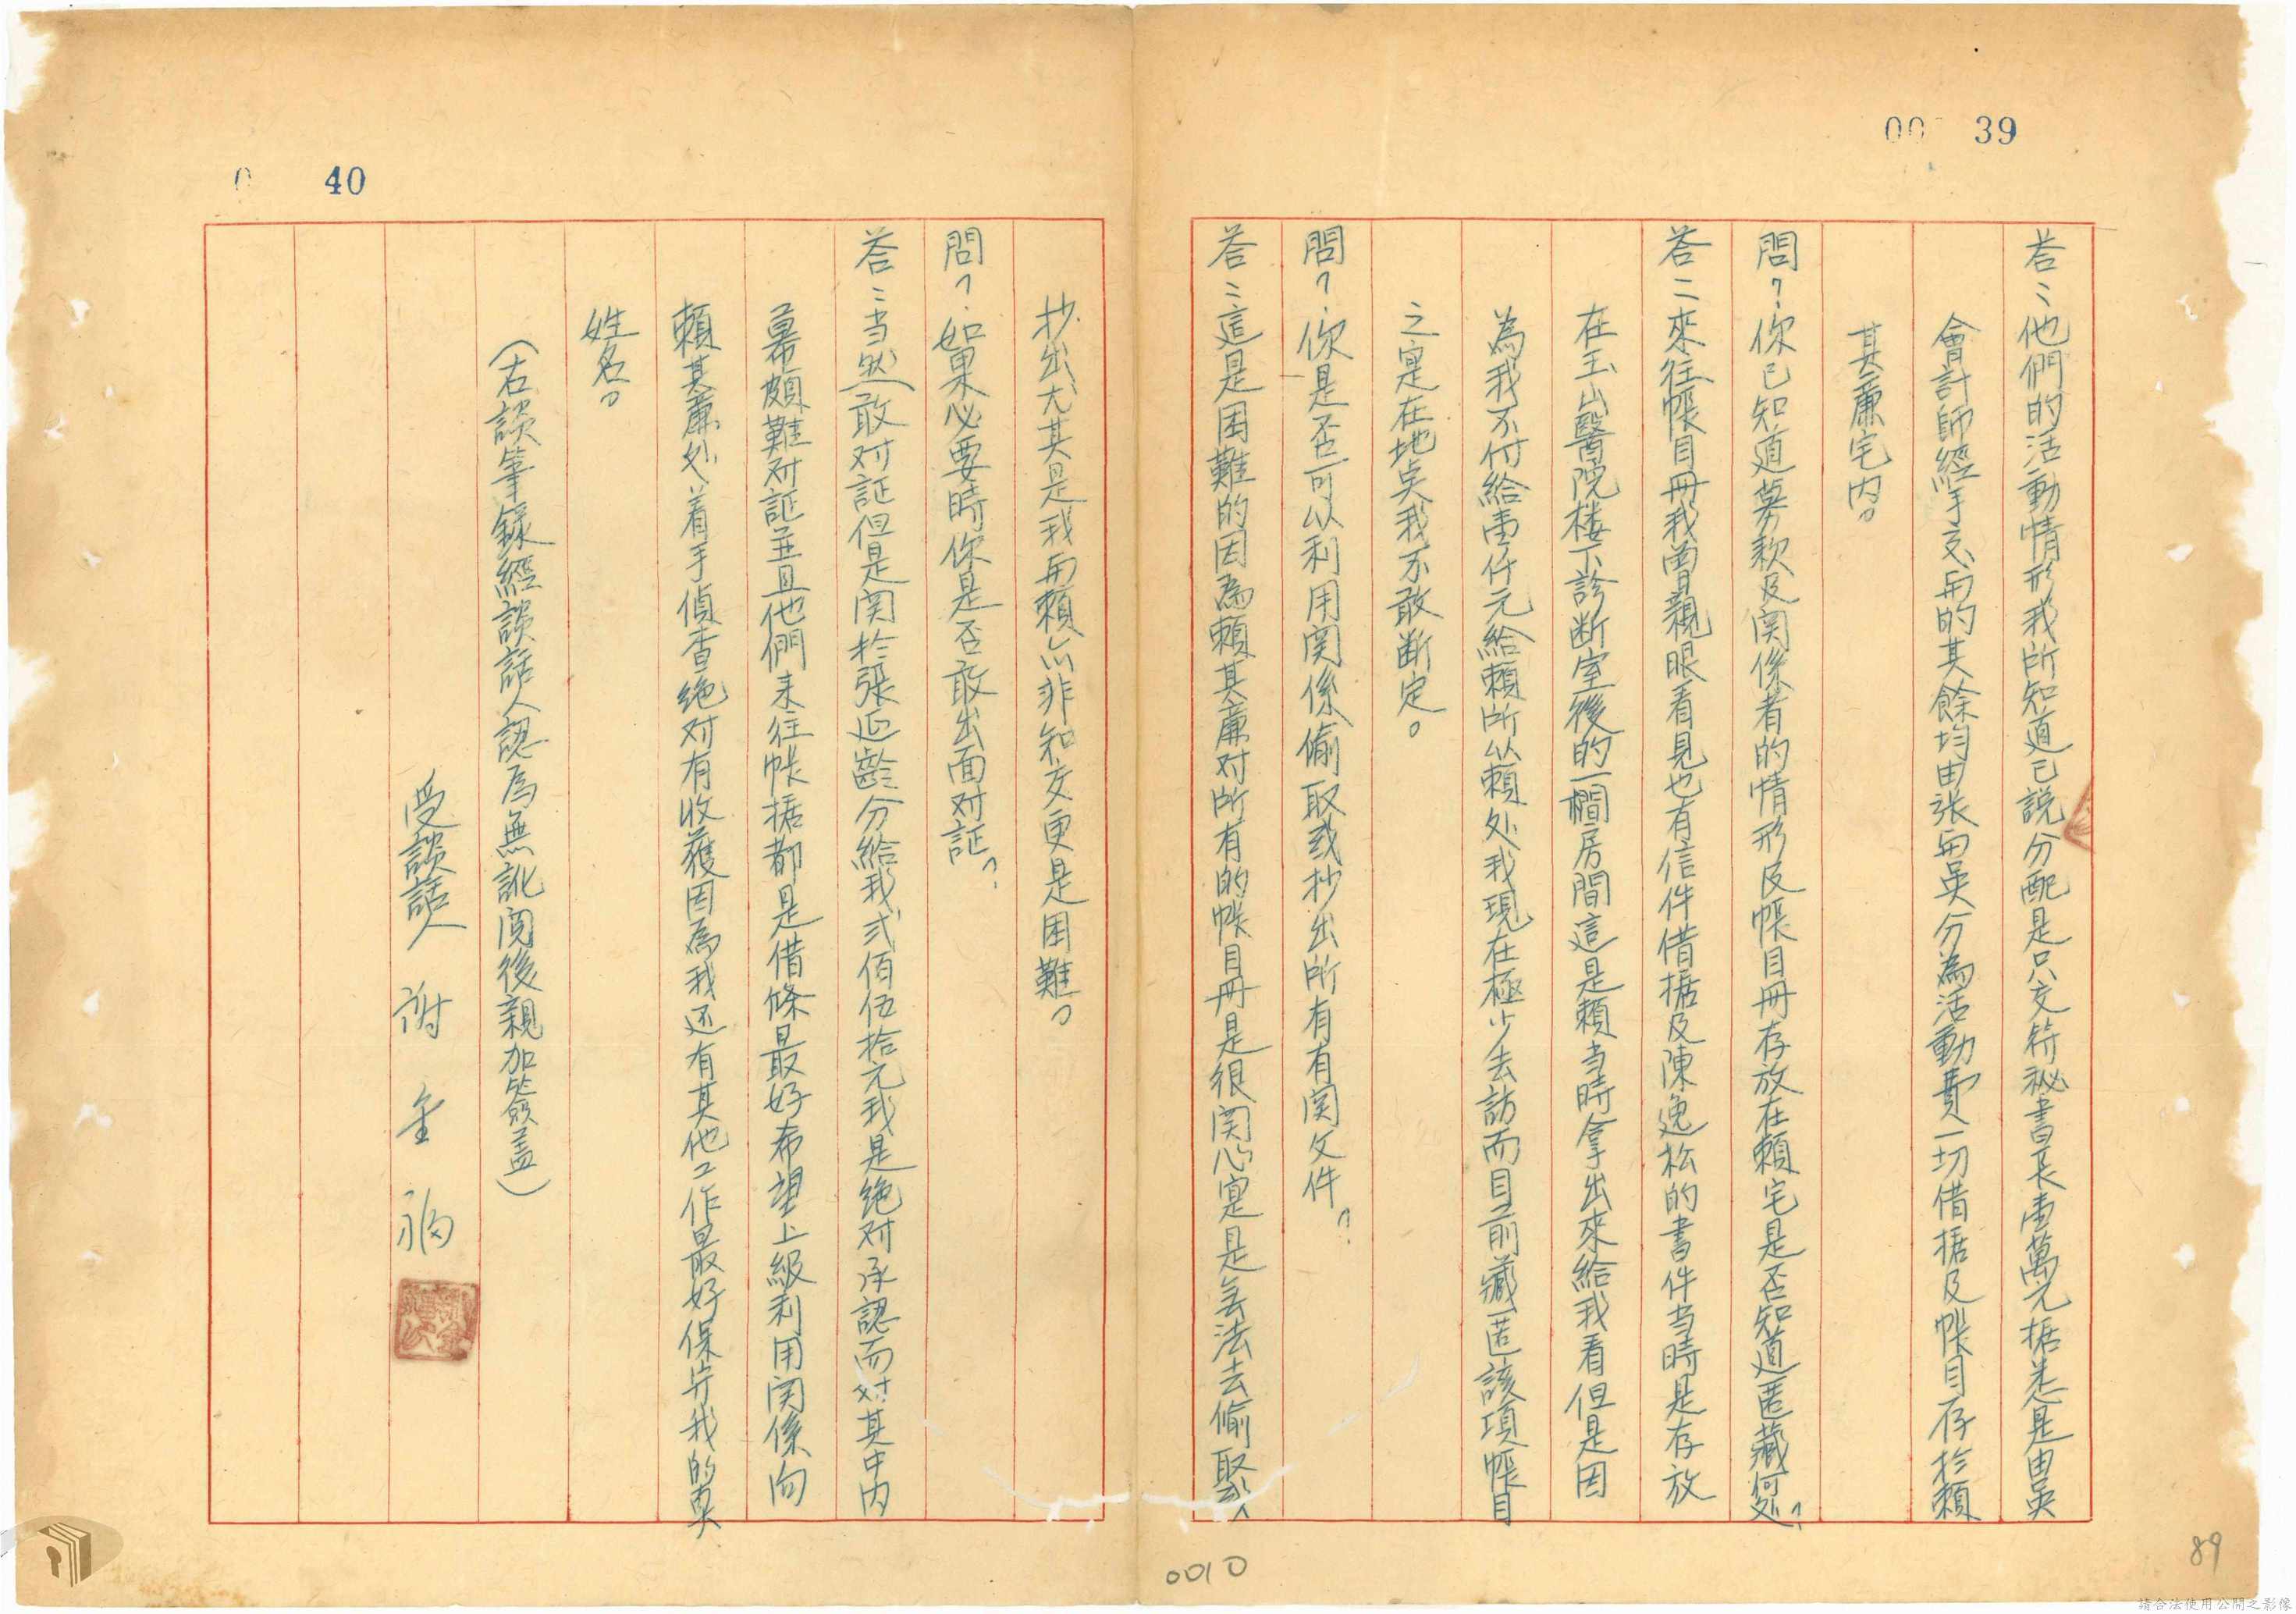 00 39
答:他們的活動情形我所知道已說分配是只交符祕書長壹萬元据悉是由吳
會計師經手交与的其餘均由张与吳分為活動費一切借据及帳目存於賴
其廉宅内。
問?:你已知道募款及関係者的情形及帳目冊存放在賴宅是否知道匿藏何处?
答:來往帳目冊我曾親眼看見也有信件借据及陳逸松的書件当時是存放
在玉山醫院楼下診断室後的一櫊房間這是賴当時拿出來給我看但是因
為我不付給壹仟元給賴所以賴处我現在極少去訪而目前藏匿該項帳目
之寔在地点我不敢断定。
問?:你是否可以利用関係偷取或抄出所有有関文件?
答:這是困難的因為賴其廉对所有的帳目冊是很関心寔是無法去偷取
0 40
抄出尤其是我与賴亦非知交更是困難。
問?:如果必要時你是否敢出面对証?
答:当然敢对証但是関於張延齡分給我弍佰伍拾元我是絶对承認而对其中内
幕頗難对証並且他們来往帐据都是借條最好希望上級利用関係向
賴其廉处着手偵查絶对有收獲因為我还有其他工作最好保守我的真
姓名。
(右談筆錄經談話人認為無訛閱後親加簽盖)
受談話人 謝金福
0010
89
請合法使用公開之影像